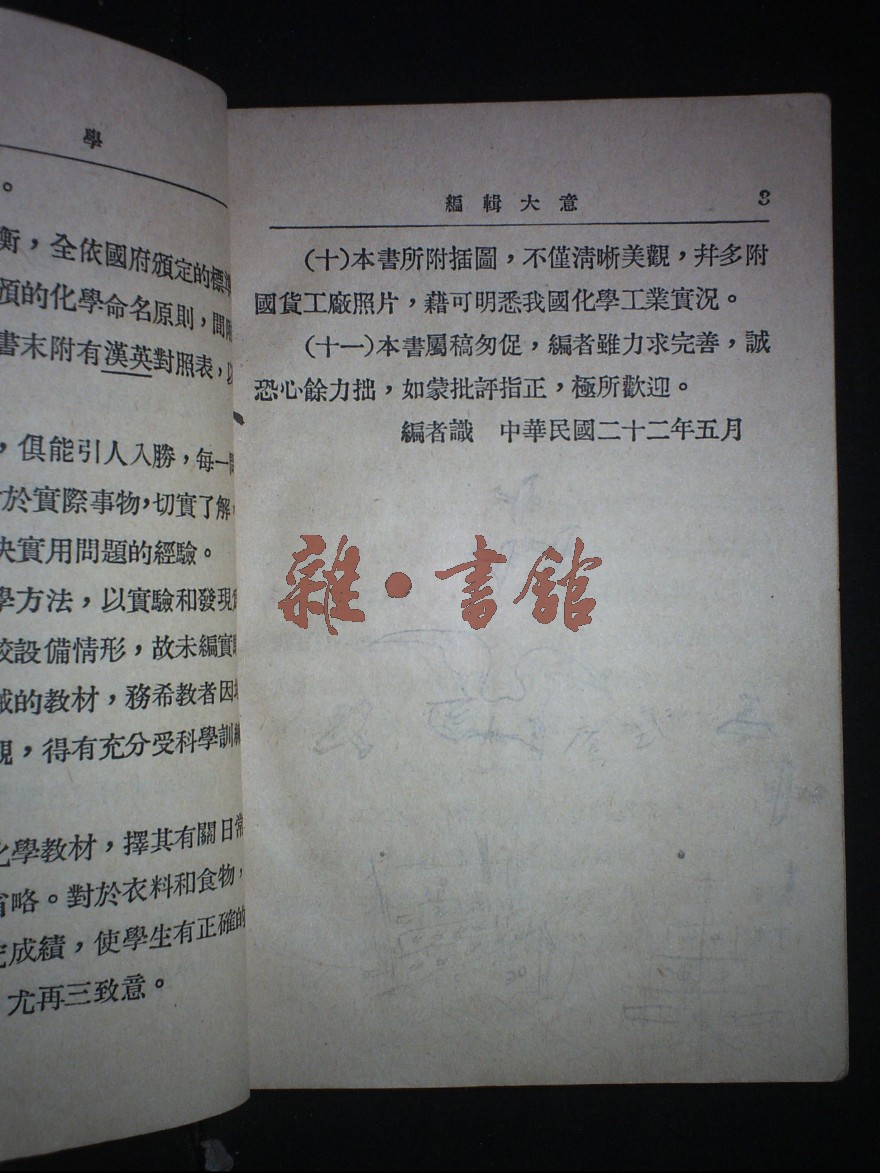 學
。
衡，全依國府頒定的標準
頒的化學命名原則，間附
書末附有漢英對照表，以
，俱能引人入勝，每一
於實際事物，切實了解，
決實用問題的經驗。
學方法，以實驗和發現
校設備情形，故未編實
的教材，務希教者因
觀，得有充分受科學訓練
化學教材，擇其有關日常
省略。對於衣料和食物，
究成績，使學生有正確的
，尤再三致意。
編輯大意 3
(十)本書所附插圖，不僅清晰美觀，幷多附
國貨工廠照片，藉可明悉我國化學工業實況。
(十一)本書屬稿匆促，編者雖力求完善，誠
恐心餘力拙，如蒙批評指正，極所歡迎。
編者識　中華民國二十二年五月
雜·書館